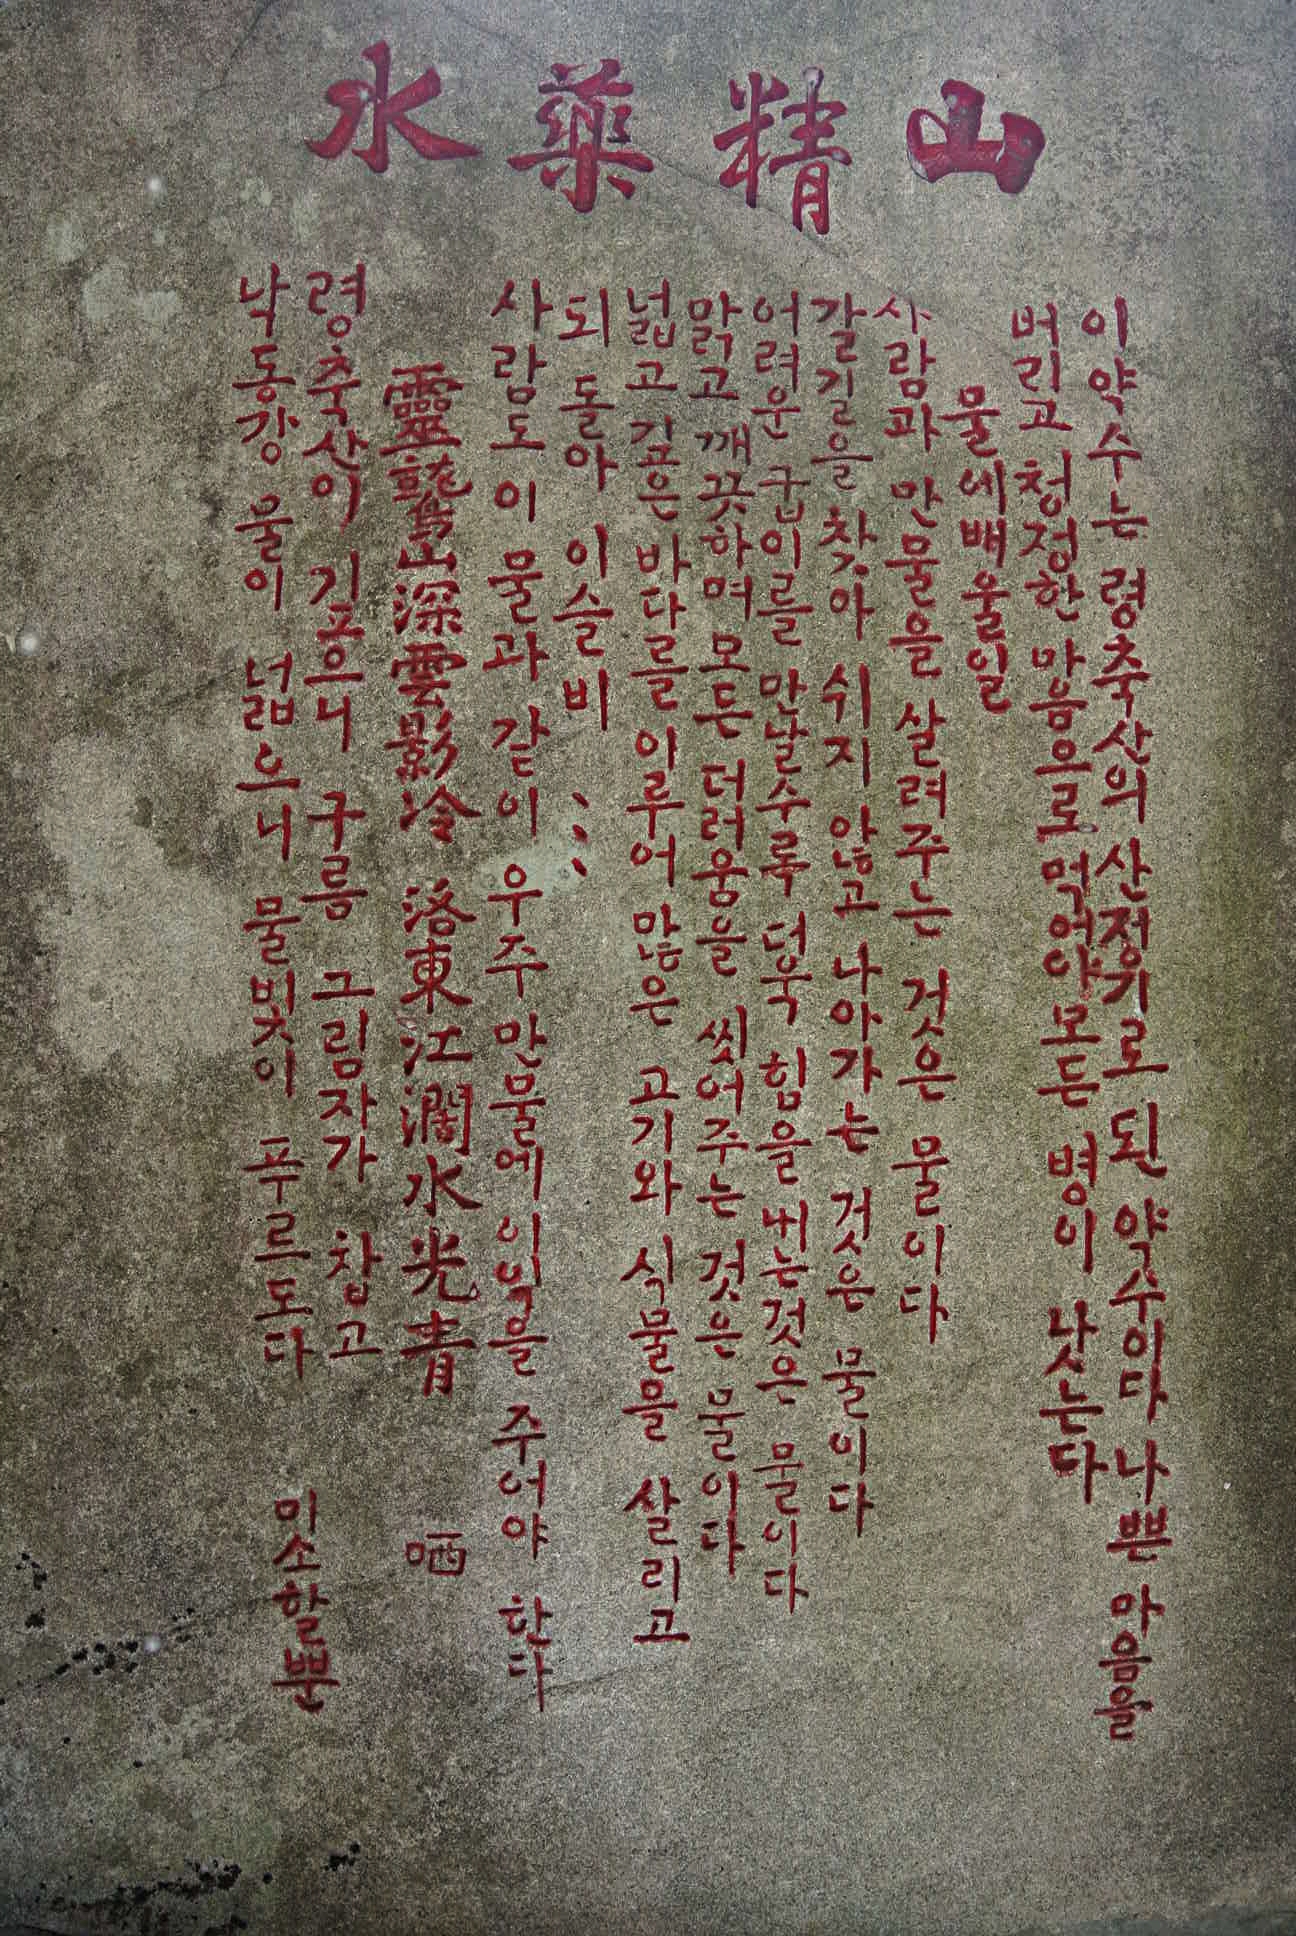 山精藥水
이 약수는 령축산의 산정기로 된 약수이다 나쁜 마음을
버리고 청정한 마음으로 먹어야 모든 병이 낫는다
물에배울일
사람과 만물을 살려주는 것은 물이다
갈길을 찾아 쉬지 않고 나아가는 것은 물이다
어려운 굽이를 만날수록 더욱 힘을 내는것은 물이다
맑고 깨끗하며 모든 더러움을 씻어주는 것은 물이다
넓고 깊은 바다를 이루어 많은 고기와 식물을 살리고
되돌아 이슬비 、、、
사람도 이 물과 같이 우주 만물에 이익을 주어야 한다
靈鷲山深雲影冷 洛東江濶水光青 哂
령축산이 기프으니 구름 그림자가 찹고
낙동강 물이 넓으니 물빛이 푸르도다 미소할뿐